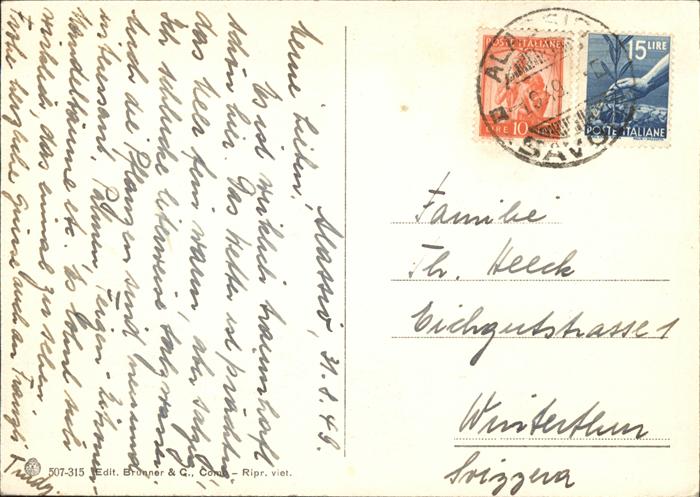 Alassio, 31.8.49.
Meine Lieben,
Es ist wirklich traumhaft
schön hier. Das Wetter ist prächtig,
das Meer fein warm, aber salzig,
Ich schlucke literweise Salzwasser.
Auch die Pflanzen sind neu und
interessant, Palmen, Feigen- Zitronen-
Mandelbäume etc. Es lohnt sich
wirklich, das einmal zu sehen.
Frohe herzliche Grüsse auch an
Trudy.
POSTE ITALIANE
LIRE 10
15 LIRE
POSTE ITALIANE
SAVONA
Familie
Th. Heeck
Eichgutstrasse 1
Winterthur
Svizzera
507-315 Edit. Brunner & C., Como - Ripr. viet.